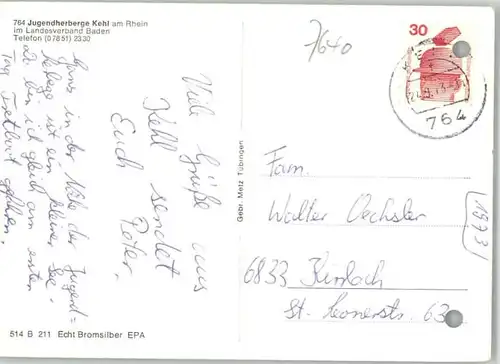 764 Jugendherberge Kehl am Rhein
im Landesverband Baden
Telefon (07851) 2330
7640
30
764
Viele Grüße aus
Kehl sendet
Euch
Peter.
Ganz in der Nähe der Jugend=
herberge ist ein kleiner See.
Da bin ich gleich am ersten
Tag Tretboot gefahren.
Gebr. Metz Tübingen
Fam.
Walter Oechsler
1973
6833 Kirrlach
St. Leonerstr. 63
514 B 211 Echt Bromsilber EPA